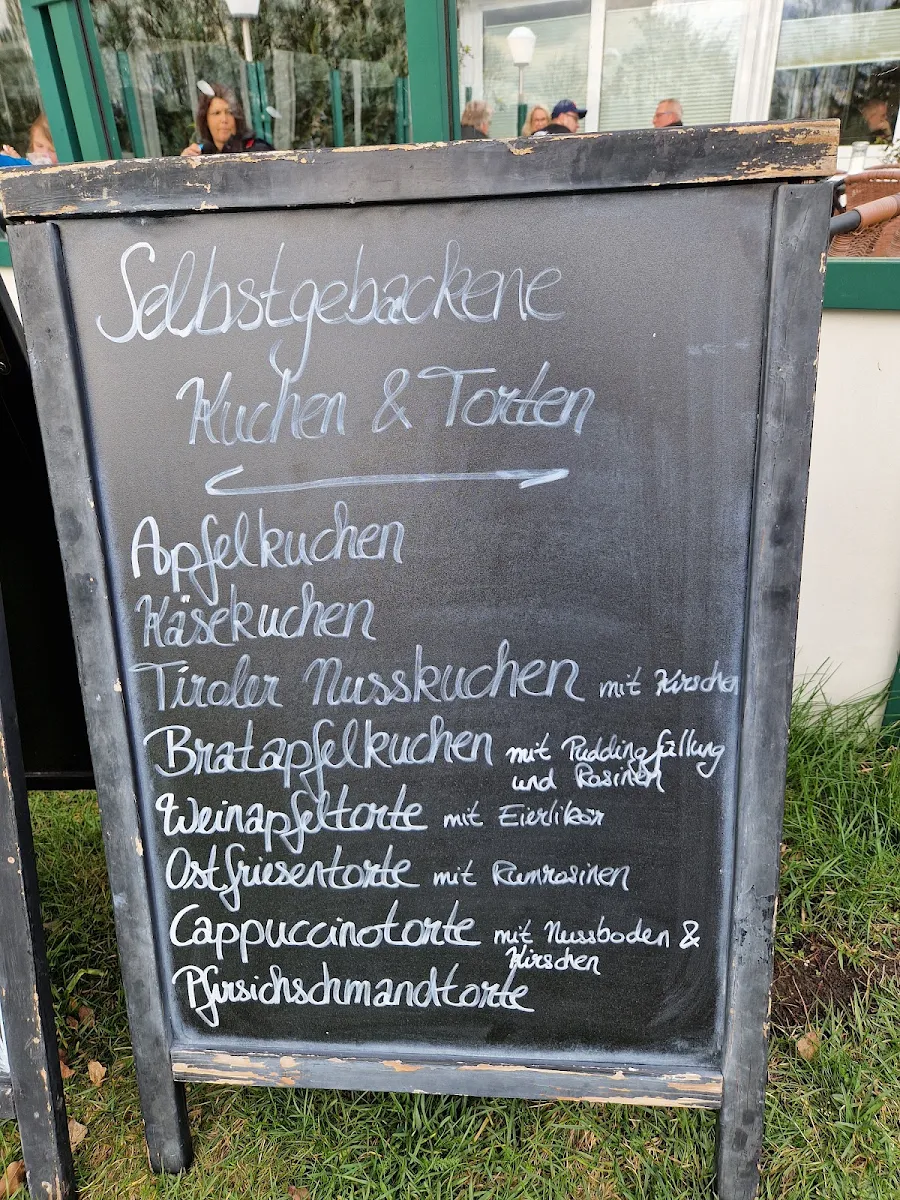 Selbstgebackene
Kuchen & Torten
Apfelkuchen
Käsekuchen
Tiroler Nusskuchen mit Kirschen
Bratapfelkuchen mit Puddingfüllung
und Rosinen
Weinapfeltorte mit Eierlikör
Ostfriesentorte mit Rumrosinen
Cappuccinotorte mit Nussboden &
Kirschen
Pfirsichschmandtorte